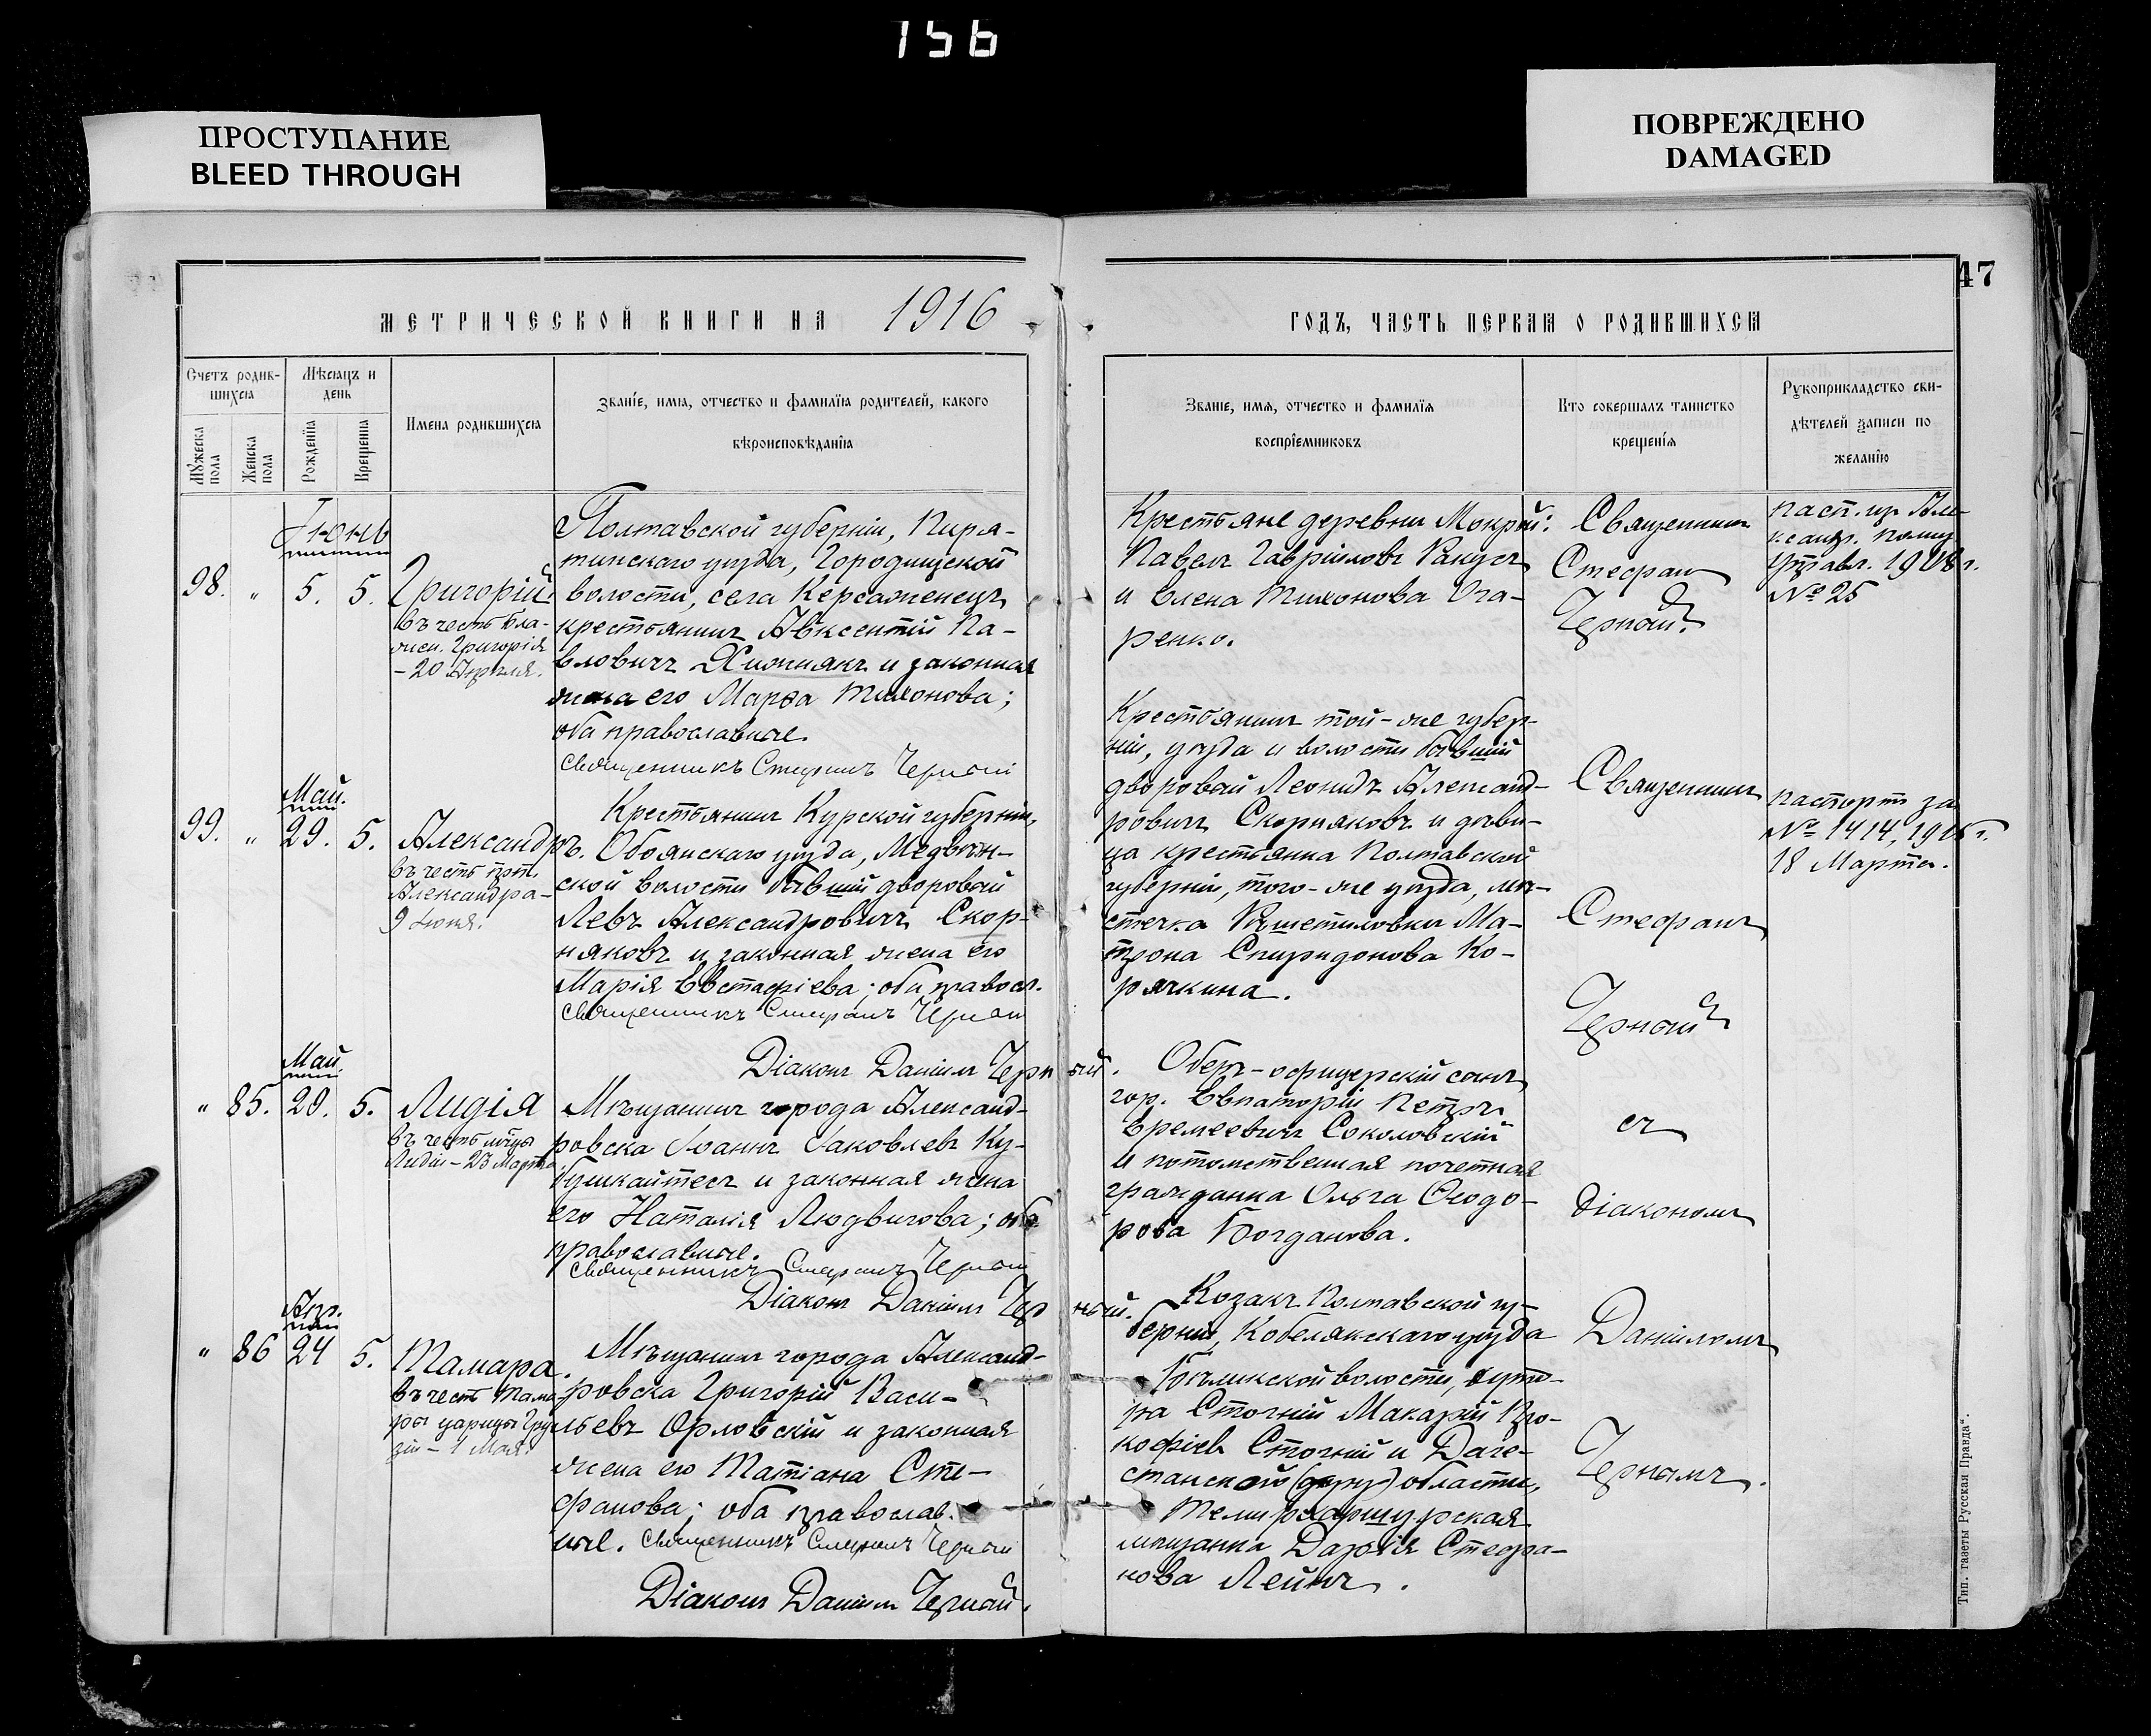 156
ПРОСТУПАНИЕ
BLEED THROUGH
ПОВРЕЖДЕНО
DAMAGED
47
МЕТРИЧЕСКОЙ КНИГИ НА 1916
ГОДЪ, ЧАСТЬ ПЕРВАЯ О РОДИВШИХСЯ
Счетъ родив-
шихся
Мѣсяцъ и
день
Мужеска
пола
Женска
пола
Рожденія
Крещенія
Имена родившихся
Званіе, имя, отчество и фамилія родителей, какого
вѣроисповѣданія
Званіе, имя, отчество и фамилія
воспріемниковъ
Кто совершалъ таинство
крещенія
Рукоприкладство сви-
дѣтелей записи по
желанію
Іюнь
98. " 5. 5. Григорій
въ честь
Григорія
- 20 Апрѣля.
Полтавской губерніи, Пиря-
тинскаго уѣзда, Городищской
волости, села
крестьянинъ Авксентій Па-
вловичъ Хижнякъ и законная
жена его Марѳа Тихонова;
оба православные.
Священникъ Стефанъ Черный
Крестьяне деревни Мокрой:
Павелъ Гавріиловъ
и Елена Тихонова Ога-
ренко.
Священникъ
Стефанъ
Черный.
пасп. из Але-
ксандр.
1908 г.
№ 25
Май.
99. " 29. 5. Александръ.
въ честь прп.
Александра -
9 Іюня.
Крестьянинъ Курской губерніи,
Обоянскаго уѣзда, Медвѣн-
ской волости бывшій дворовый
Левъ Александровичъ Скор-
няковъ и законная жена его
Марія Евстафіева; оба правосл.
Священникъ Стефанъ Черный
Діаконъ Даніилъ Черный.
Крестьянинъ той-же губер-
ніи, уѣзда и волости бывшій
дворовый Леонидъ Александ-
ровичъ Скорняковъ и дѣви-
ца крестьянка Полтавской
губерніи, того-же уѣзда, мѣ-
стечка Рѣшетиловки Ма-
трона Спиридонова Ко-
рячкина.
Священникъ
Стефанъ
Черный
паспортъ за
№ 1414, г.
18 Марта.
Май.
" 85. 20. 5. Лидія
въ честь мчцы
Лидіи - 23 Марта.
Мѣщанинъ города Александ-
ровска Іоаннъ Іаковлевъ Ку-
и законная жена
его Наталія Людвигова; оба
православные.
Священникъ Стефанъ Черный
Діаконъ Даніилъ Черный.
Оберъ-офицерскій сынъ
гор. Евпаторіи Петръ
Еремеевичъ Соколовскій
и потомственная почетная
гражданка Ольга Ѳеодо-
рова Богданова.
съ
діакономъ
Апр.
" 86 24 5. Тамара.
въ честь Тама
ры царицы Гру
зіи - 1 Мая.
Мѣщанинъ города Александ-
ровска Григорій Васи-
льевъ Орловскій и законная
жена его Татіана Сте-
фанова; оба православ.
ные. Священникъ Стефанъ Черный
Діаконъ Даніилъ Черный.
Козакъ Полтавской гу-
берніи, Кобелякскаго уѣзда
Бѣликской волости, хуто-
ра Сточній Макарій Про-
кофіевъ Сточній и Даге-
станской области,
мѣщанка Дарія Стефа-
нова Лейнъ.
Даніиломъ
Чернымъ.
Тип. газеты Русская Правда".